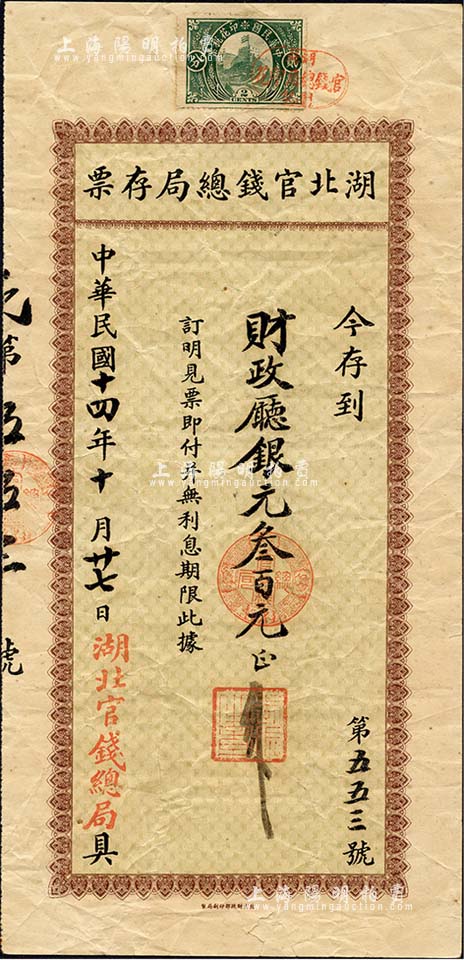 上海陽明拍賣
www.yangmingauction.com
中華民國印花稅票
貳
分
2
CENTS
票存局總錢官北湖
今存到
財政廳銀元叁百元正
訂明見票即付并無利息期限此據
中華民國十四年十月廿七日湖北官錢總局具
第五五三號
元第伍伍三號
上海陽明拍賣
www.yangmingauction.com
上海陽明拍賣
www.yangmingauction.com